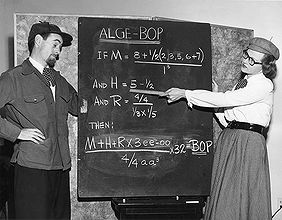 ALGE-BOP
IF M = 8 + ½(2,3,5,6+7)
1³
AND H = 5 - ½
AND R = 4/4
⅓ x ⅕
THEN:
M+H+R x 3 ee-oo x 32 = BOP
4/4 aa³